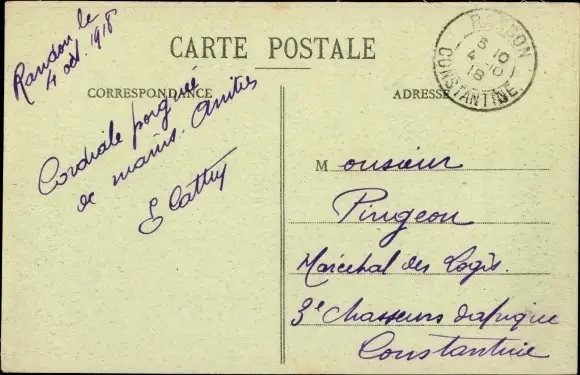 Randon le
4 oct. 1918
CARTE POSTALE
RANDON
3 10
4 -10
18
CONSTANTINE
CORRESPONDANCE
ADRESSE
Cordiale poignée
de mains. Amitiés
Monsieur
Pingeon
Marechal des Logis
3e Chasseurs d'afrique
Constantine